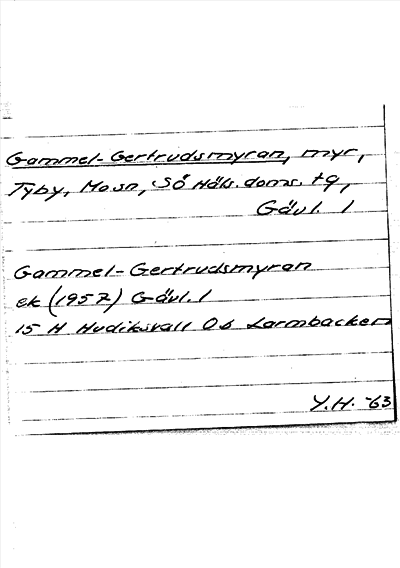 Gammel-Gertrudsmyran, myr,
Tyby, Mo sn, SÖ Häls. doms. tg,
Gävl. l
Gammel-Gertrudsmyran
ek (1957) Gävl. l
15 H Hudiksvall Ob Larmbacken
Y.H. -63